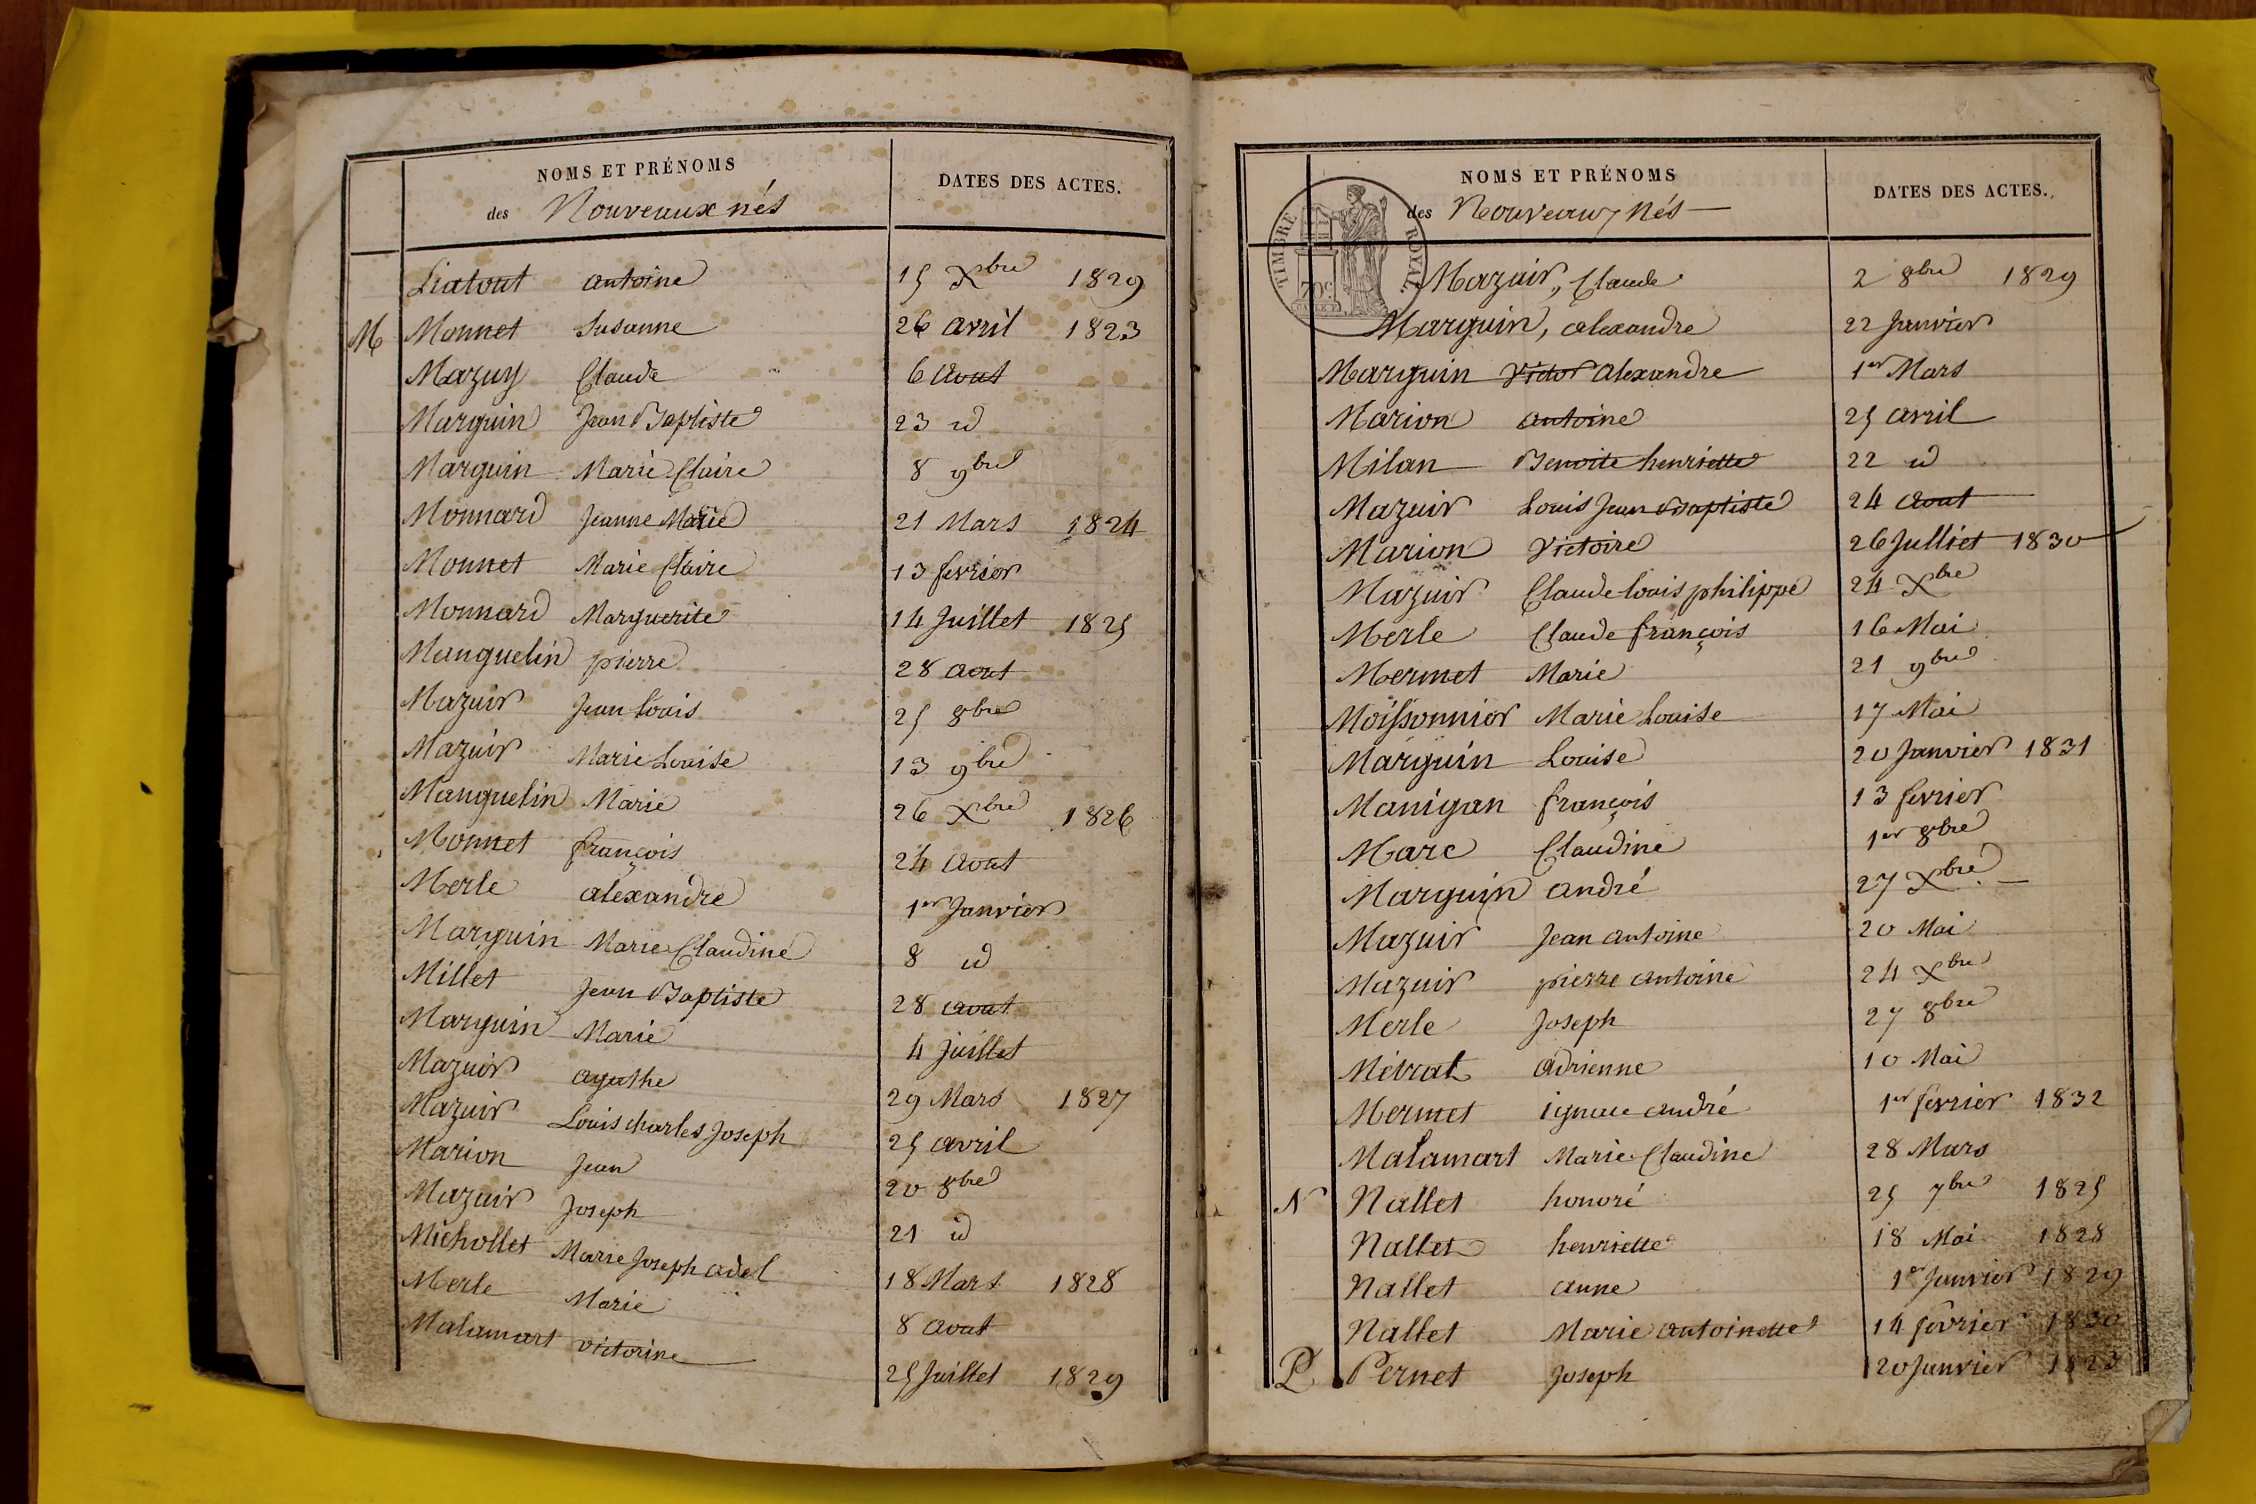 NOMS ET PRÉNOMS
des Nouveaux nés
DATES DES ACTES.
Liatout antoine 15 Xbre 1829
M Monnet Susanne 26 avril 1823
Mazuy Claude 6 Aout
Marguin Jean Baptiste 23 id
Marguin Marie Claire 8 9bre
Monnard Jeanne Marie 21 Mars 1824
Monnet Marie Claire 13 fevrier
Monnard Marguerite 14 Juillet 1825
Manguelin pierre 28 aout
Mazuir Jean Louis 25 8bre
Mazuir Marie Louise 13 9bre
Manguelin Marie 26 Xbre 1826
Monnet françois 24 Aout
Merle alexandre 1er Janvier
Marguin Marie Claudine 8 id
Millet Jean Baptiste 28 aout
Marguin Marie 4 Juillet
Mazuir agathe 29 Mars 1827
Mazuir Louis charles Joseph 25 avril
Marion Jean 20 8bre
Mazuir Joseph 21 id
Michollet Marie Joseph adel 18 Mars 1828
Merle Marie 8 aout
Malamart victorine 25 Juillet 1829
NOMS ET PRÉNOMS
des Nouveaux Nés
DATES DES ACTES.
TIMBRE ROYAL
70c
Mazuir, Claude 2 8bre 1829
Marguin, alexandre 22 Janvier
Marguin Victor alexandre 1er Mars
Marion antoine 25 avril
Milan Benoite henriette 22 id
Mazuir Louis Jean Baptiste 24 Aout
Marion Victoire 26 Julliet 1830
Mazuir Claude Louis philippe 24 Xbre
Merle Claude françois 16 Mai
Mermet Marie 21 9bre
Moissonnier Marie Louise 17 Mai
Marguin Louise 20 Janvier 1831
Manigan françois 13 fevrier
Marc Claudine 1er 8bre
Marguin andré 27 Xbre
Mazuir Jean antoine 20 Mai
Mazuir pierre antoine 24 Xbre
Merle Joseph 27 8bre
Métrat Adrienne 10 Mai
Mermet ignace andré 1er fevrier 1832
Malamart Marie Claudine 28 Mars
N Nallet honoré 25 7bre 1825
Nallet henriette 18 Mai 1828
Nallet anne 1er Janvier 1829
Nallet Marie antoinette 14 fevrier 1830
P Pernet Joseph 20 Janvier 1823